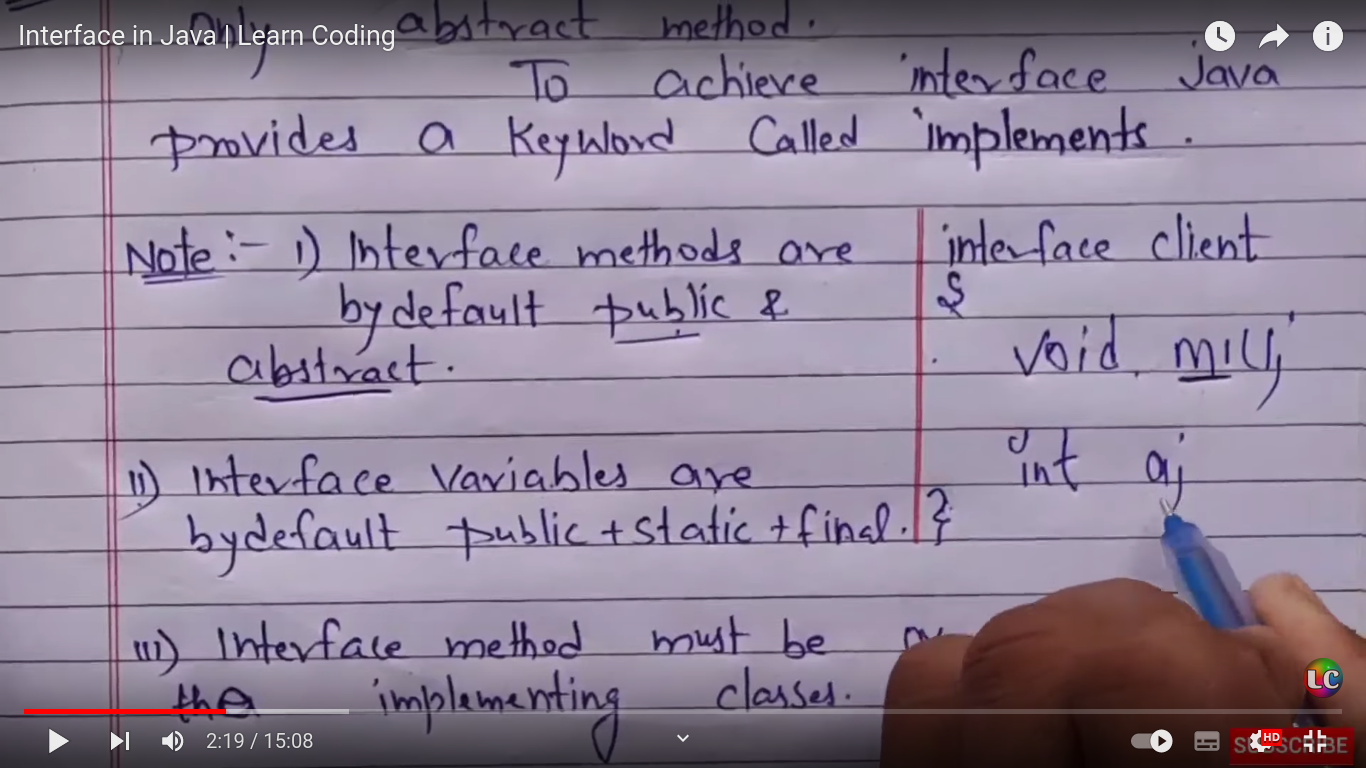 Interface in Java | Learn Coding
Only abstract method.
To achieve interface java
provides a Keyword Called implements.
Note :- i) Interface methods are
bydefault public &
abstract.
interface client
{
void
int a;
}
II) Interface variables are
bydefault public + static + final.
III) Interface method must be
the implementing classes.
LC
2:19 / 15:08
HD
SUBSCRIBE